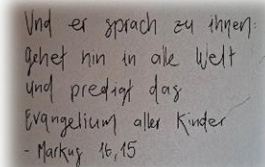 Und er sprach zu ihnen:
Gehet hin in alle Welt
und predigt das
Evangelium aller Kinder
- Markus 16,15